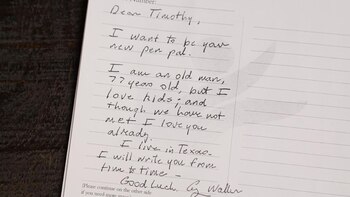 Number:
Dear Timothy,
I want to be your
new pen pal.
I am an old man,
77 years old, but I
love kids; and
though we have not
met I love you
already.
I live in Texas -
I will write you from
time to time -
Good luck. G. Walker
(Please continue on the other side